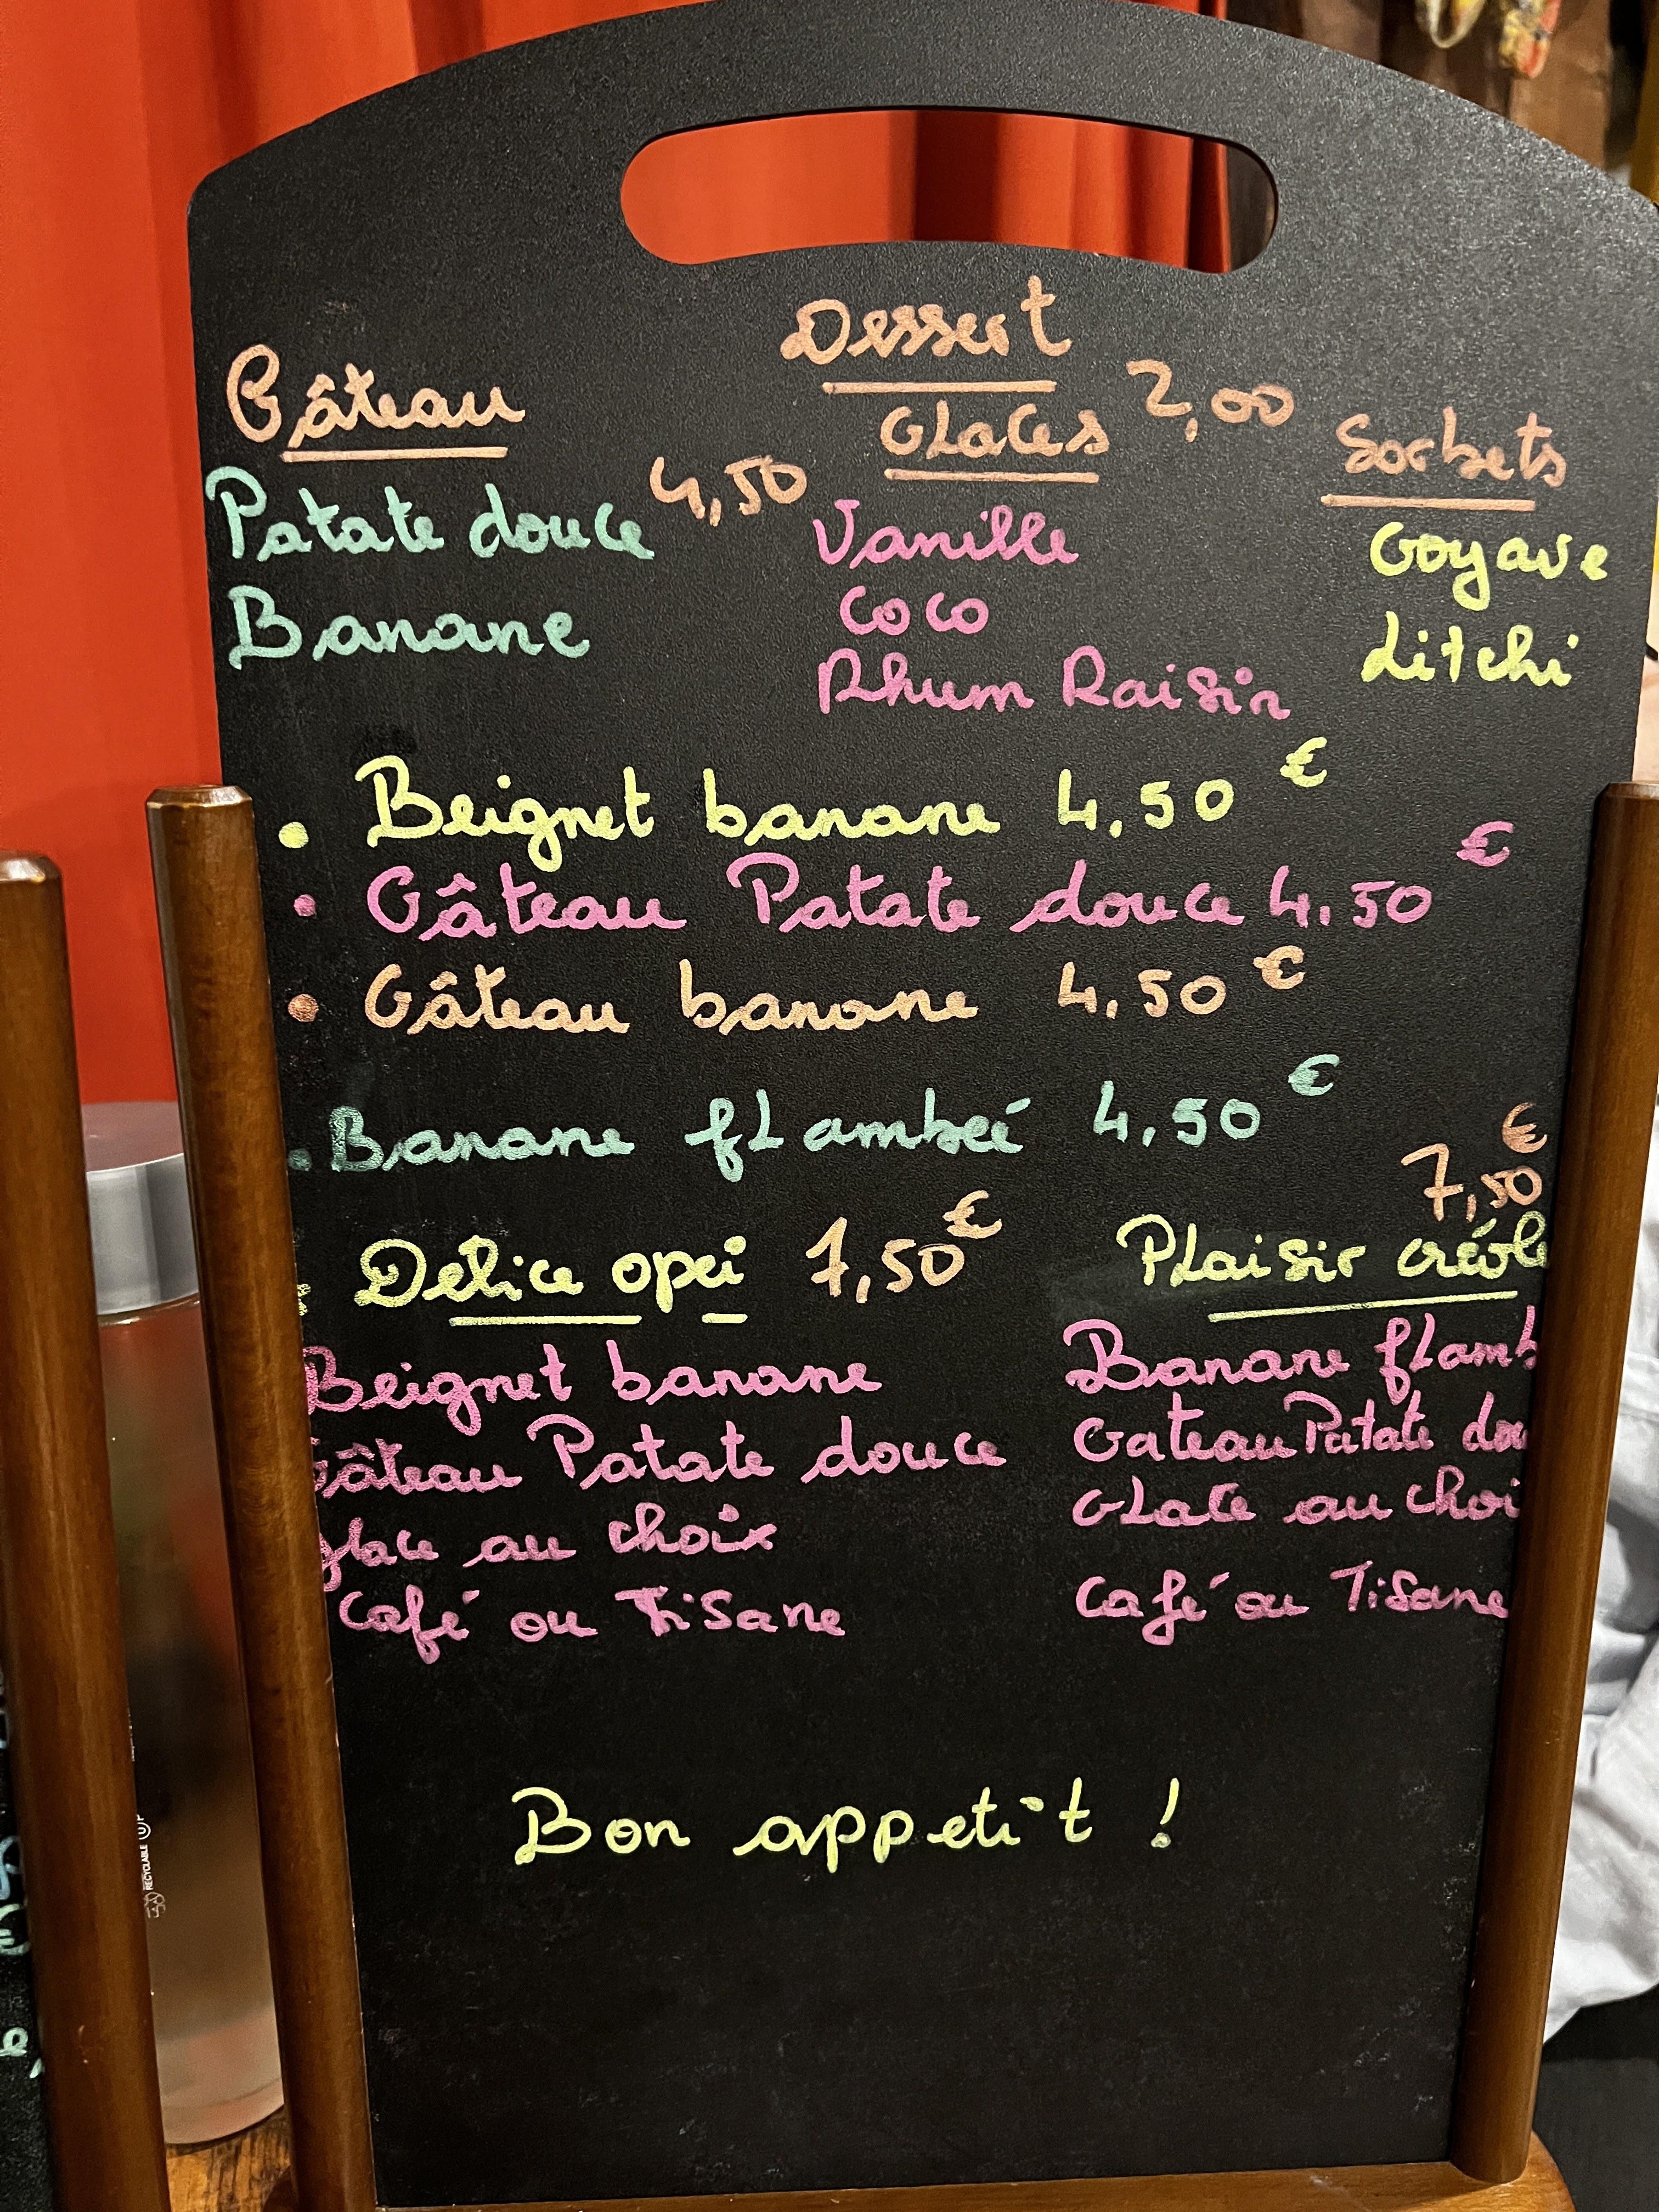 Dessert
Gâteau
4,50
Patate douce
Banane
Glaces 2,00
Vanille
Coco
Rhum Raisin
Sorbets
Goyave
Litchi
• Beignet banane 4,50 €
• Gâteau Patate douce 4,50 €
• Gâteau banane 4,50 €
. Banane flambeé 4,50 €
Delice opei 7,50 €
Beignet banane
Gâteau Patate douce
glace au choix
Café ou Tisane
7,50 €
Plaisir créole
Banane flamb
Gateau Patate dou
Glace au choi
Café ou Tisane
Bon appetit !
RECYCLABLE